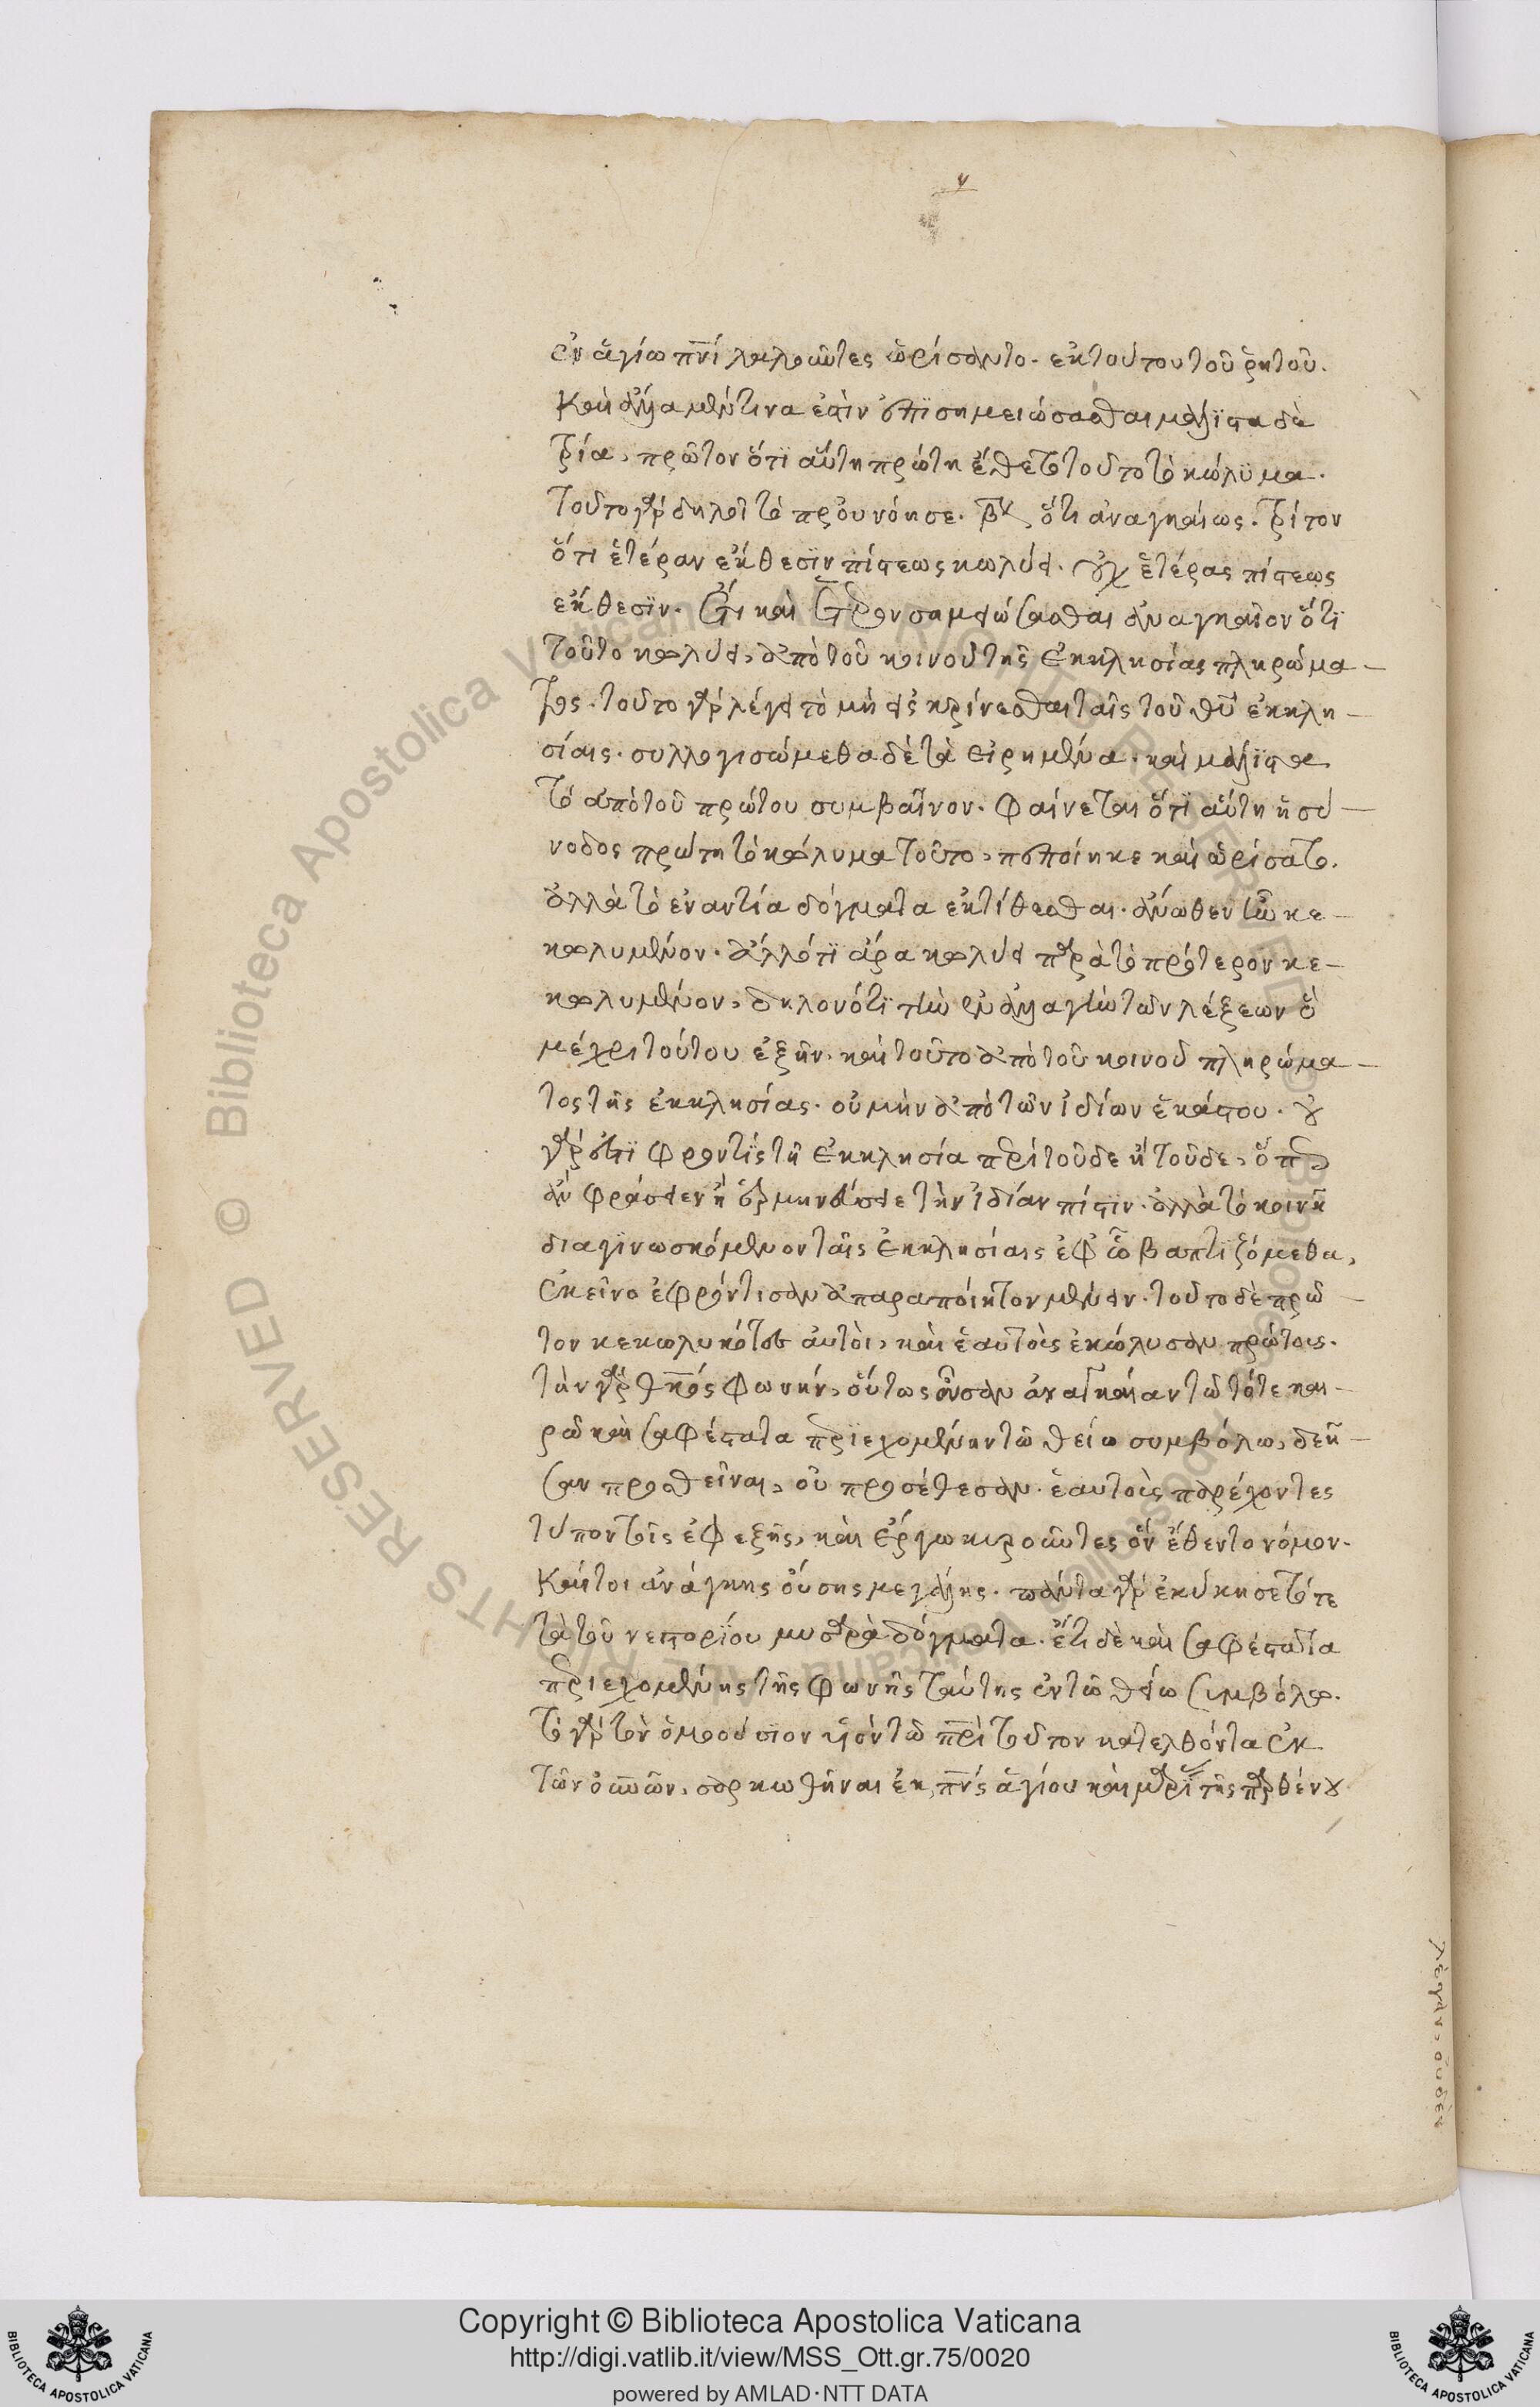 ἐν ἁγίω πνί λαλοῦντες ὡρίσαντο. ἐκ τούτου τοῦ ῥητοῦ.
καὶ ἄλλα μέν τινα ἐστὶν ἐπισημειώσασθαι μάλιστα δὲ
τρία, πρῶτον ὅτι αὕτη πρώτη ἔθετο τοῦτο τὸ κώλυμα.
τοῦτο γὰρ δηλοῖ τὸ προυνόησε. βον ὅτι ἀναγκαίως. τρίτον
ὅτι ἑτέραν ἔκθεσιν πίστεως κωλύει. οὐχ ἑτέρας πίστεως
ἔκθεσιν. ἔτι καὶ ἕτερον σημειώσασθαι ἀναγκαῖον ὅτι
τοῦτο κωλύει, ἀπὸ τοῦ κοινοῦ τῆς ἐκκλησίας πληρώμα-
τος. τοῦτο γὰρ λέγει τὸ μὴ εἰσκρίνεσθαι ταῖς τοῦ θυ ἐκκλη-
σίαις. συλλογισώμεθα δὲ τὰ εἰρημένα. καὶ μάλιστα
τὸ ἀπὸ τοῦ πρώτου συμβαῖνον. φαίνεται ὅτι αὕτη ἡ σύ-
νοδος πρώτη τὸ κώλυμα τοῦτο, πεποίηκε καὶ ὡρίσατο.
ἀλλὰ τὸ ἐναντία δόγματα ἐκτίθεσθαι. ἄνωθεν ἦν κε-
κωλυμένον. ἄλλό τι ἄρα κωλύει παρὰ τὸ πρότερον κε-
κωλυμένον, δηλονότι τὴν ἐναλλαγὴν τῶν λέξεων ὃ
μέχρι τούτου ἐξῆν. καὶ τοῦτο ἀπὸ τοῦ κοινοῦ πληρώμα-
τος τῆς ἐκκλησίας. οὐ μὴν ἀπὸ τῶν ἰδίων ἑκάστου. οὐ
γάρ ἐστι φροντὶς τῆ ἐκκλησία περὶ τοῦδε ἢ τοῦδε, ὅπως
ἂν φράσειεν ἢ ἑρμηνεύσειε τὴν ἰδίαν πίστιν. ἀλλὰ τὸ κοινῆ
διαγινωσκόμενον ταῖς ἐκκλησίαις ἐφ' ᾧ βαπτιζόμεθα,
ἐκεῖνο ἐφρόντισαν ἀπαραποίητον μένειν. τοῦτο δὲ πρῶ-
τον κεκωλυκότες αὐτοὶ, καὶ ἑαυτοὺς ἐκώλυσαν πρώτοις.
τὴν γὰρ θκος φωνήν, οὕτως οὖσαν ἀναγκαίαν τῶ τότε και-
ρῶ καὶ σαφέστατα περιεχομένην τῶ θείω συμβόλω, δεῆ-
σαν προσθεῖναι, οὐ προσέθεσαν. ἑαυτοὺς παρέχοντες
τύπον τοῖς ἐφεξῆς, καὶ ἔργω κυροῦντες ὃν ἔθεντο νόμον.
καίτοι ἀνάγκης οὔσης μεγάλης. πάντα γὰρ ἐκύκησε τότε
τὰ τοῦ νεστορίου μυσαρὰ δόγματα. ἔτι δὲ καὶ σαφέστατα
περιεχομένης τῆς φωνῆς ταύτης ἐν τῶ θείω συμβόλω.
τὸ γὰρ τὸν ὁμοούσιον υἱὸν τῶ πρὶ τοῦτον κατελθόντα ἐκ
τῶν οὐνῶν, σαρκωθῆναι ἐκ πνς ἁγίου καὶ μαρί τῆς παρθένου